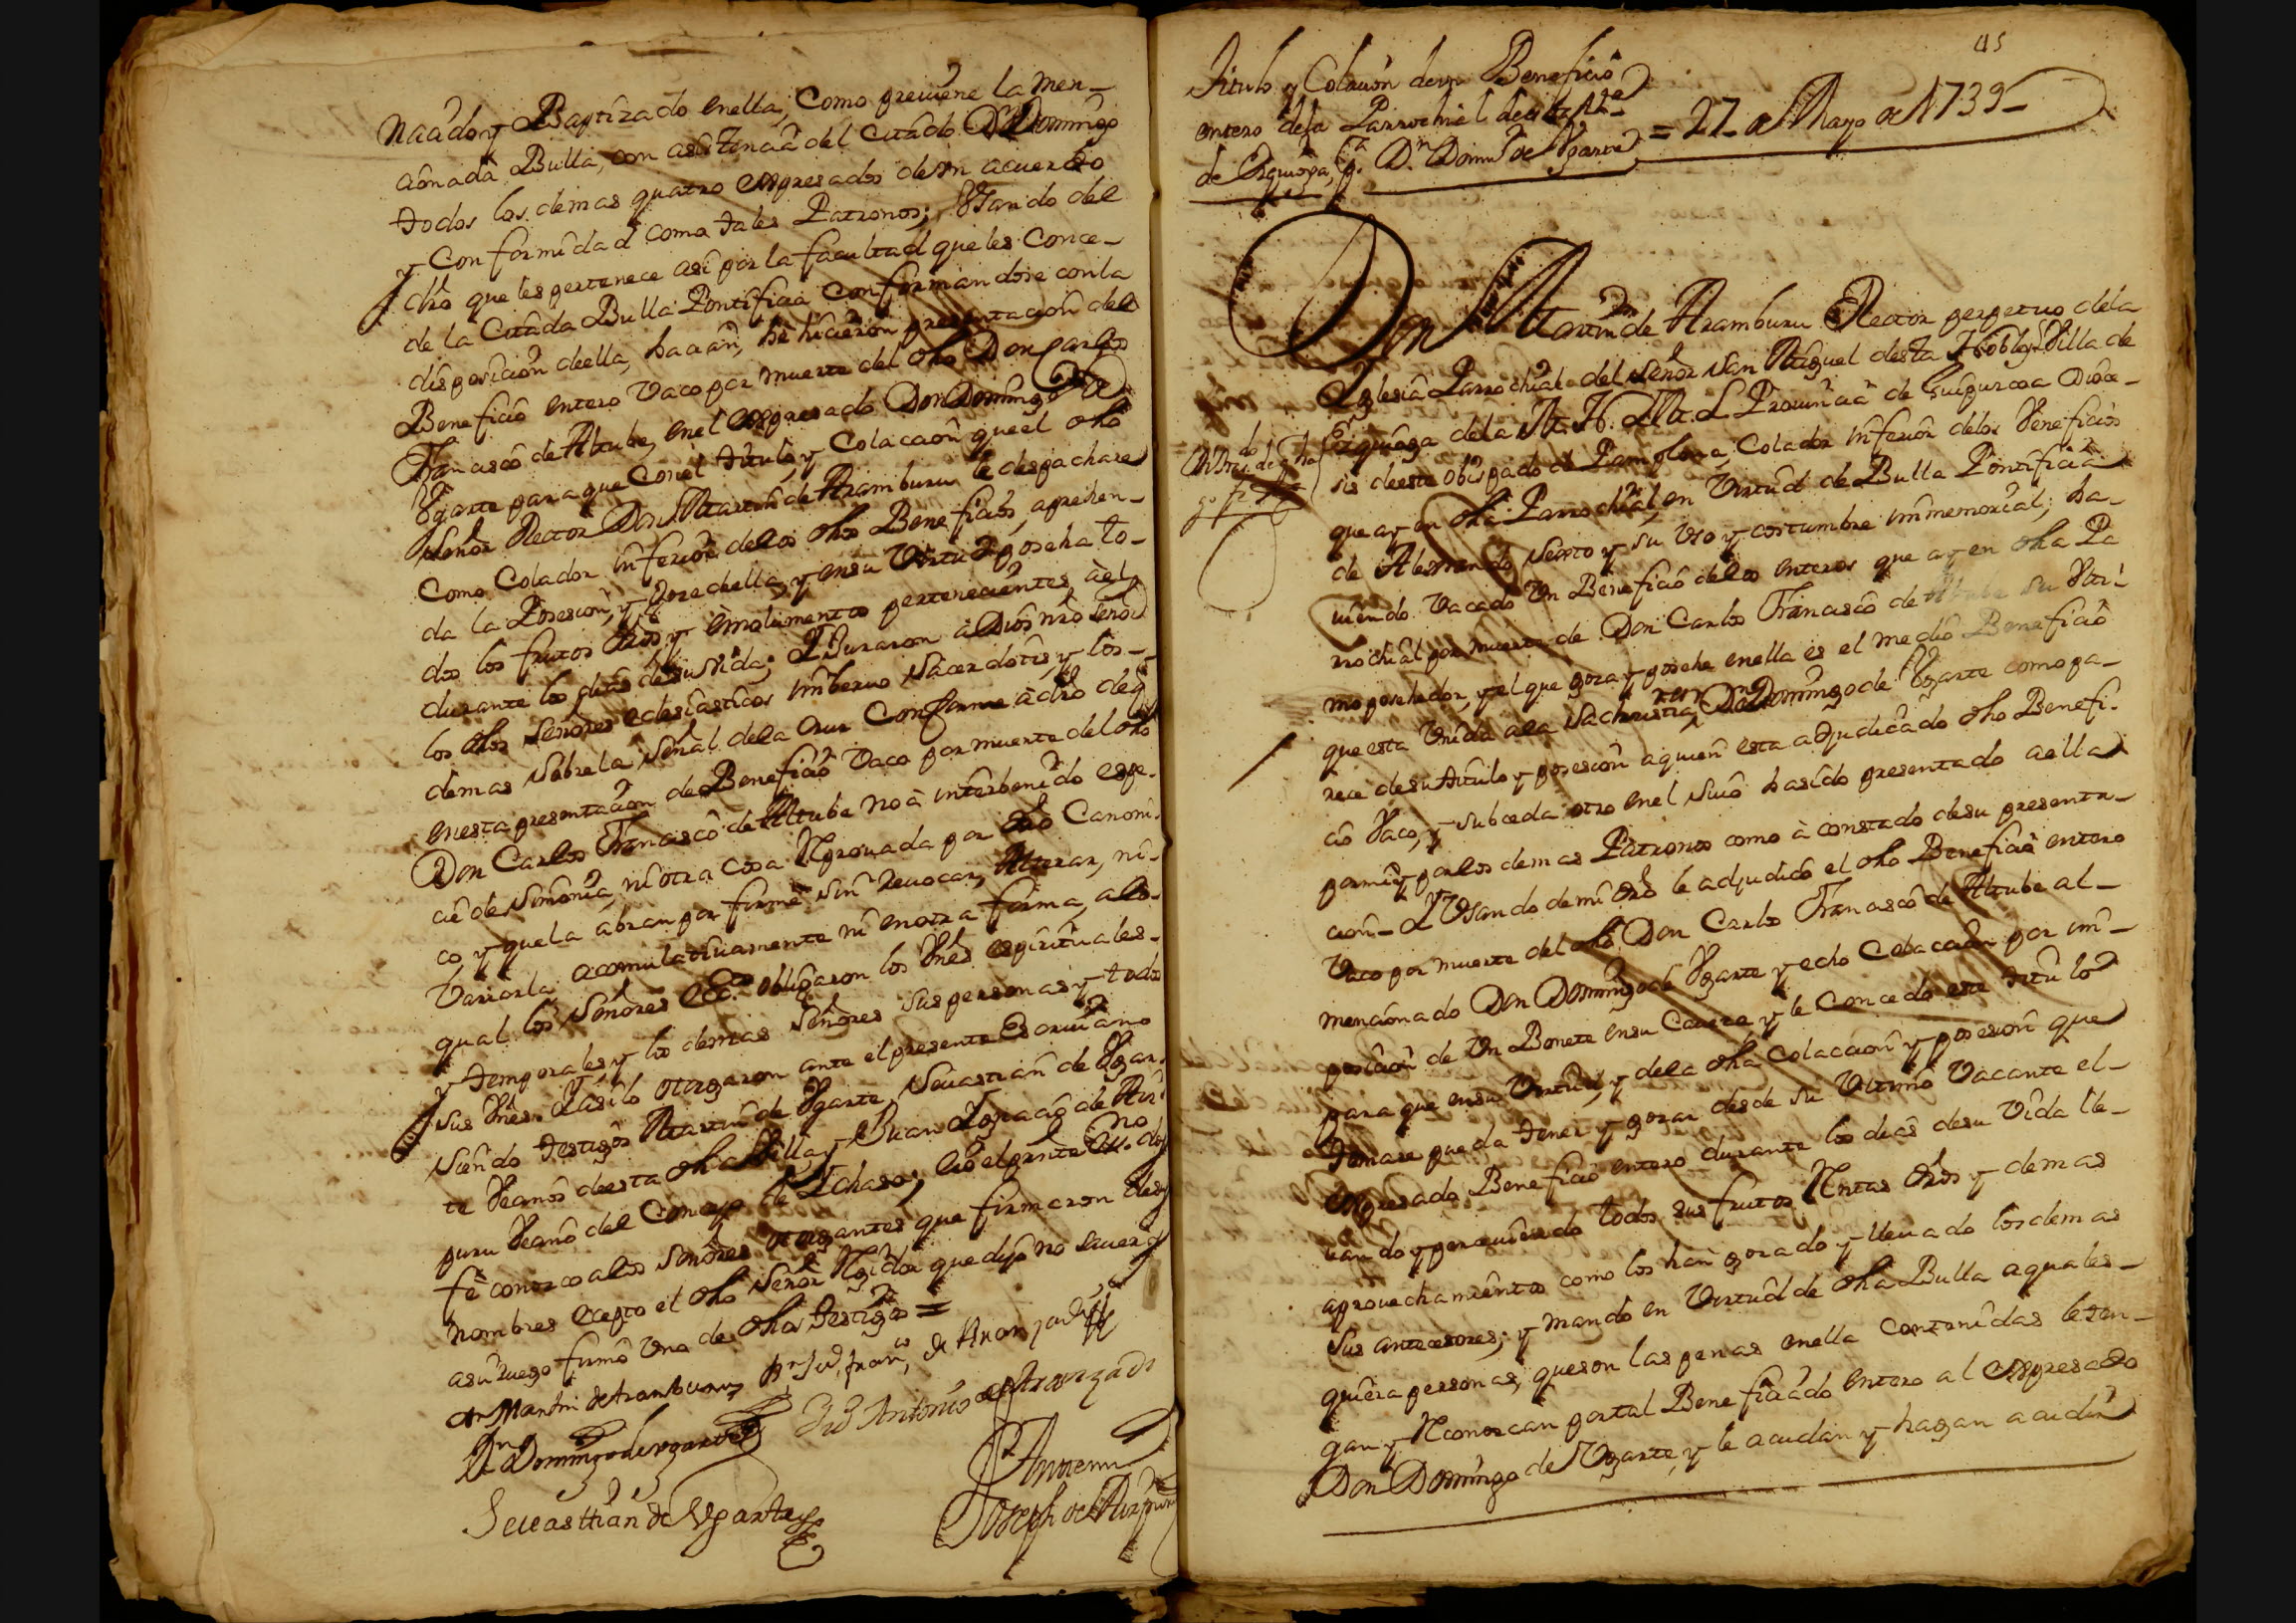 Naçido y Baptizado enella, Como preuiene la Men-
cionada Bulla, con asistencia del Citado Dn Domingo
todos los demas quatro expresados de vn acuerdo
y Conformidad como tales Patronos; Vsando del
dro que les pertenece asi por la facultad que les Conce-
de la Citada Bulla Pontificia Conformandose con la
disposicion deella, haçian, he hicieron presentacion del
Beneficio entero Vaco por muerte del dho Don Carlos
Francisco de Altube, enel expresado Don Domingo de
Vgarte para que Conel titulo, y Colacion que el dho
Señor Rector Don Martin de Aramburu le despachare
Como Colador inferior delos dhos Beneficios, aprehen-
da la Posesion, y goze della, y ensu Virtud poseha to-
dos los frutos dros y emolumentos pertenecientes àel
durante los dias de su Vida; I Juraron à Dios nro señor
los dhos Señores eclesiasticos inberuo Sacerdotis, y los-
demas Sobre la Señal dela Cruz Conforme à dro de q̃
enesta presentacion de Beneficio Vaco por muerte del dho
Don Carlos Francisco de Altube no à interbenido espe-
cie de Simonia, ni otra Cosa Reprouada por dro Canoni-
co y que la abran por firme sin reuocar, Alterar, ni-
Variarla acomulatiuamente ni en otra forma, alo-
qual los Señores ecc.cos obligaron los Vnes espirituales-
y temporales, y los demas Señores sus personas y todos
sus Vnes. I asi lo otorgaron ante el presente Escriuano
Siendo testigos Martin de Vgarte, Seuastian de Vgar-
te Veçinos deesta dha Villa, y Juan Ignacio de Azt
puru Veçino del Concejo de Ichaso; Eio el prnte Ess.no doy
fè conozco alos Señores otorgantes que firmaron Sus
nombres ecepto el dho Señor Regidor que dijo no Sauer y
asu ruego firmò Vno de dhos testigos =
Dn Martin de Aramburu
Dn Domingo de vgarte
Antonio de Aranzadi
Anttemi
Seuasttian de Vgarte
Joseph de Aizpuru
45
Titulo y Colacion devn Beneficio
entero dela Parrochial desta Va
de Ezquioga, pa Dn Domo de Vgarte = 27 de Mayo de 1739-
Don Martin de Aramburu Rector perpetuo dela
Iglesia Parrochial del Señor San Miguel desta Noble Villa de
Ezquioga dela M. N. I M. L Prouincia de Guipuzcoa Dioce-
sis deeste obispado de Pamplona, Colador inferior delos Veneficios
que ay en dha Parrochial, en Virtud de Bulla Pontificia
de Alexandro Sexto y su Vso y costumbre immemorial; ha-
uiendo Vacado Vn Beneficio delos enteros que ay en dha Pa
rrochial por muerte de Don Carlos Francisco de Altube su Vlti-
mo posehedor, y el que goza y posehe enella es el medio Beneficio
que esta Vnida ala Sachristia Dn Domingo de Vgarte como pa-
rece de su titulo y posesion aquien esta adjudicado dho Benefi-
cio Vaco, y subceda otro enel Suio ha sido presentado aella
por mi y por los demas Patronos como à constado de su presenta-
cion- I Vsando de mi dro le adjudicò el dho Beneficio entero
Vaco por muerte del dho Don Carlos Francisco de Altube al-
mencionado Don Domingo de Vgarte y echo Colacion por im-
posicion de Vn Bonete ensu Caueza y le Concedo este titulo
para que ensu Virtud, y dela dha Colacion y posesion que
tomare pueda tener y gozar desde su Vltimo Vacante el-
expresado Beneficio entero durante los dias de su Vida lle-
uando y perciuiendo todos sus frutos Rentas dros y demas
aprouechamientos como los han gozado y lleuado los demas
sus antecesores; y mando en Virtud de dha Bulla aquales-
quiera personas, queson las penas enella Contenidas leten-
gan y Reconozcan por tal Beneficiado entero al expresado
Don Domingo de Vgarte, y le acudan y hagan acudir